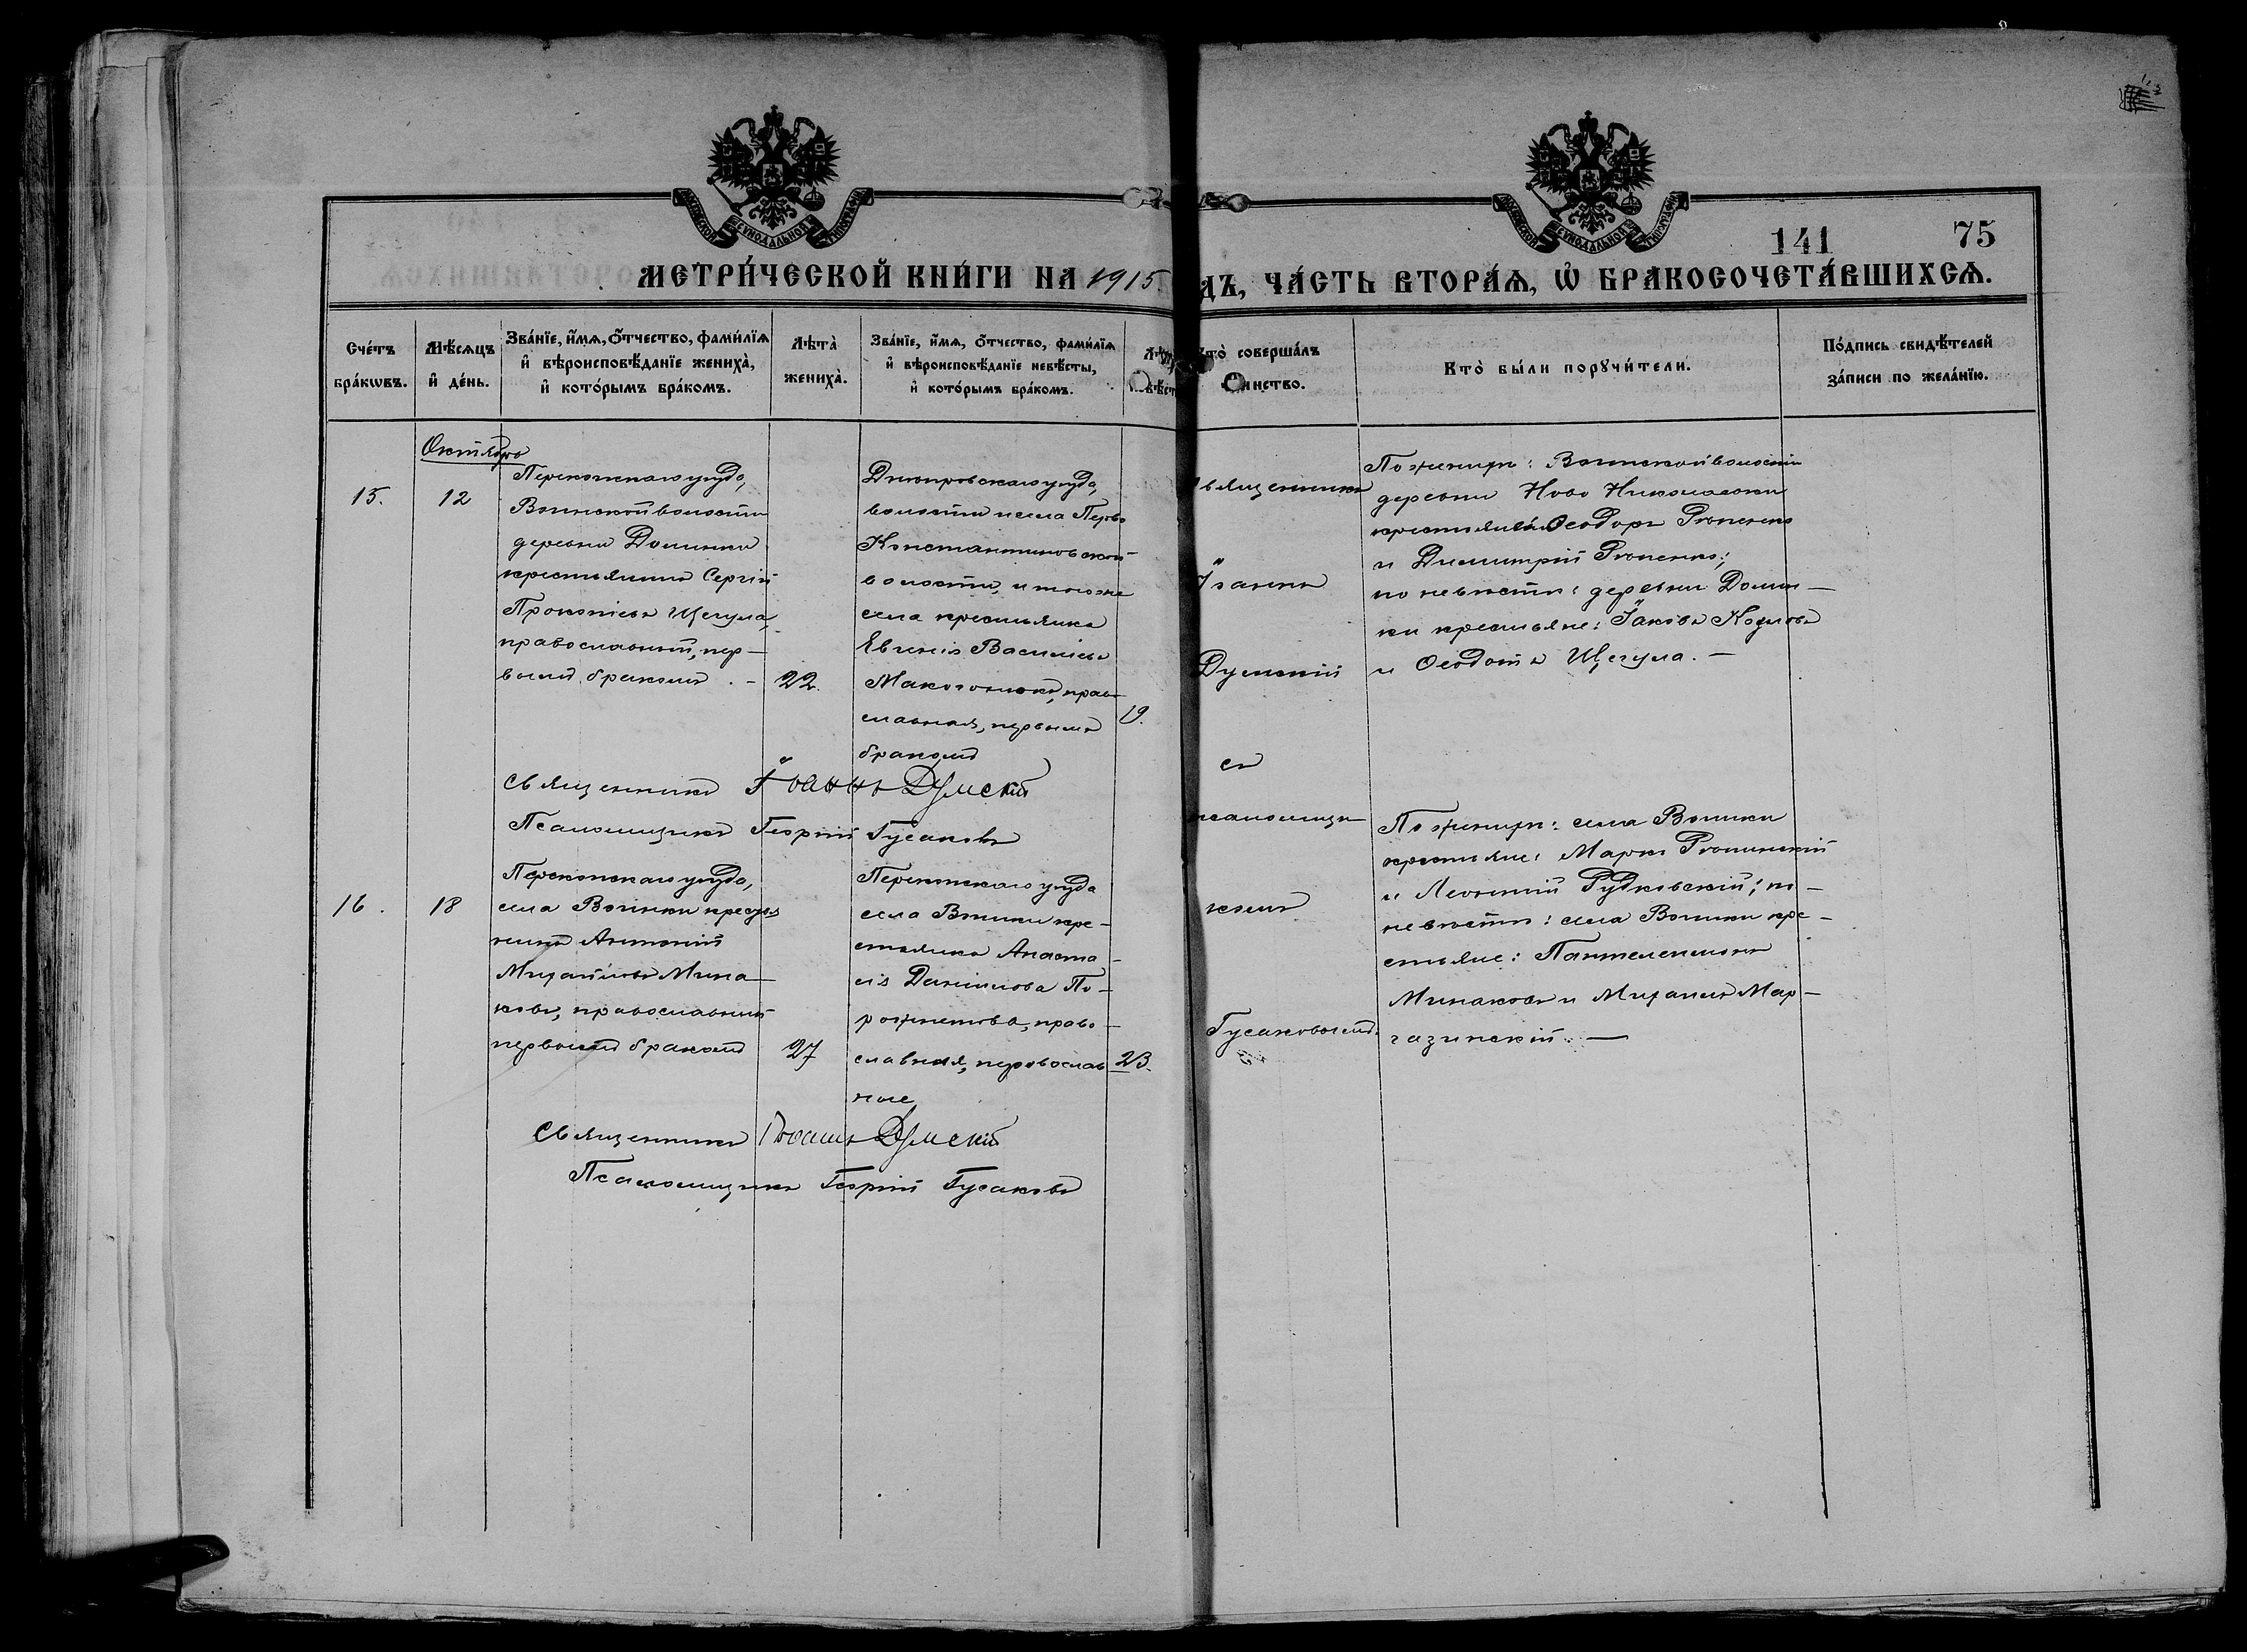 141
75
МЕТРИ́ЧЕСКОЙ КНИ́ГИ НА 1915
ДЪ, ЧА́СТЬ ВТОРА́Ѧ, Ѽ БРАКОСОЧЕТА́ВШИХСѦ.
Сче́тъ бра́кѡвъ.
Мѣ́сѧцъ и҆ де́нь.
Зва́нїе, и҆́мѧ, ѻ҆́тчество, фами́лїѧ
и҆ вѣроисповѣ́данїе жениха̀,
и҆ кото́рымъ бра́комъ.
Лѣта̀ жениха̀.
Зва́нїе, и҆́мѧ, ѻ҆́тчество, фами́лїѧ
и҆ вѣроисповѣ́данїе невѣ́сты,
и҆ кото́рымъ бра́комъ.
то̀ соверша́лъ
инство.
Кто̀ бы́ли порꙋчи́тели.
По́дпись свидѣ́телей
за́писи по жела́нїю.
Октябрь
15.
12
Перекопскаго уѣзда,
Воинской волости
деревни Долинки
крестьянинъ Сергій
Прокопіевъ Щегула,
православный, пер-
вымъ бракомъ. -
22.
Днѣпровскаго уѣзда,
волости и села Перво
Константиновской
волости, и того же
села крестьянка
Евгенія Василіева
православная, первымъ
бракомъ
19.
вященникъ
Іоаннъ
Думскій
съ
псаломщи
комъ
Гусаковымъ.
По женихѣ: Воинской волости
деревни Ново Николаевки
крестьяне Ѳеодоръ
и Димитрій
по невѣстѣ: деревни Долин-
ки крестьяне: Іаковъ Козловъ
и Ѳеодотъ Щегула. -
Священникъ Іоаннъ Думскій
Псаломщикъ Георгій Гусаковъ
16.
18
Перекопскаго уѣзда,
села Воинки крестья
нинъ Антоній
Михаиловъ Мина-
ковъ, православный
первымъ бракомъ
27
Перекопскаго уѣзда
села Воинки кре-
стьянка Анаста-
сія Даніилова По-
рожнетова, право-
славная, первослав
ные
23.
По женихѣ: села Воинки
крестьяне: Маркъ
и Леонтій Рудковскій; по-
невѣстѣ: села Воинки кре-
стьяне: Пантелеимонъ
Минаковъ и Михаилъ Мар-
газинскій. -
Священникъ Іоаннъ Думскій
Псаломщикъ Георгій Гусаковъ